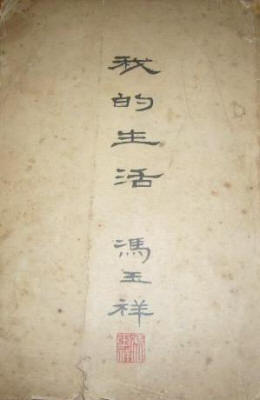 我的生活
馮玉祥